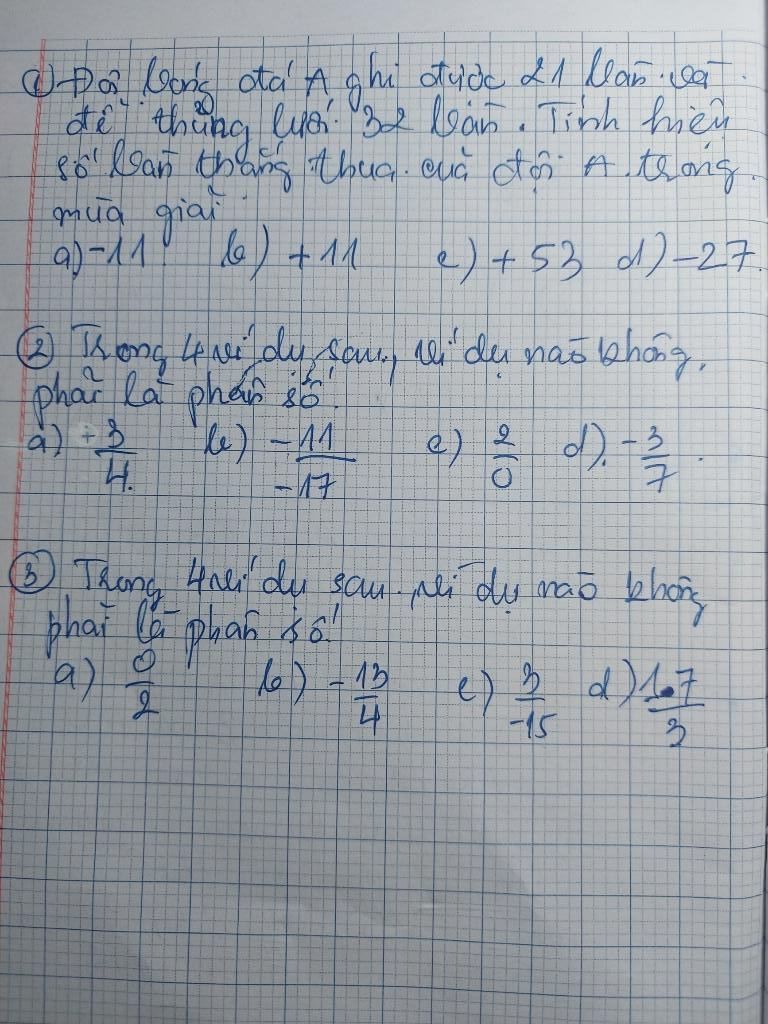 ① Đội bóng đá A ghi được 21 bàn và
để thủng lưới 32 bàn. Tính hiệu
số bàn thắng thua của đội A trong
mùa giải
a) -11 b) +11 c) +53 d) -27.
② Trong 4 ví dụ sau, ví dụ nào không
phải là phân số
a) +3/4 b) -11/-17 c) 2/0 d) -3/7.
③ Trong 4 ví dụ sau, ví dụ nào không
phải là phân số
a) 0/2 b) -13/4 c) 3/-15 d) 1.7/3